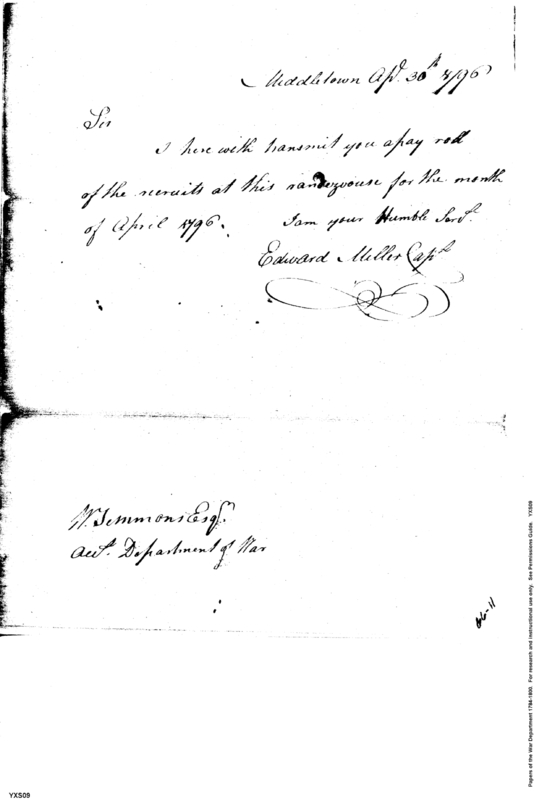 Middletown Apl. 30th 1796
Sir
I here with transmit you a pay roll
of the recruits at this randezvouse for the month
of April 1796. I am your Humble Servt.
Edward Miller Capt
W. Simmons Esqr.
Acct. Department of War
Papers of the War Department 1784-1800. For research and instructional use only. See Permissions Guide. YXS09
YXS09